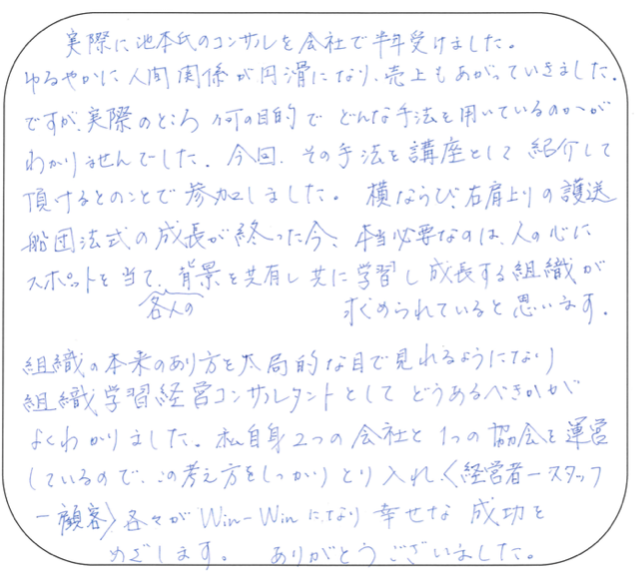 実際に池本氏のコンサルを会社で半年受けました。
ゆるやかに人間関係が円滑になり、売上もあがっていきました。
ですが、実際のところ何の目的でどんな手法を用いているのかが
わかりませんでした。今回、その手法を講座として紹介して
頂けるとのことで参加しました。横ならび、右肩上りの護送
船団法式の成長が終った今、本当必要なのは、人の心に
スポットを当て、背景を共有し共に学習し成長する組織が
各人の
求められていると思います。
組織の本来のあり方を大局的な目で見れるようになり
組織学習経営コンサルタントとしてどうあるべきかが
よくわかりました。私自身2つの会社と1つの協会を運営
しているので、この考え方をしっかりとり入れ、〈経営者ースタッフ
ー顧客〉各々がWin-Winになり幸せな成功を
めざします。 ありがとうございました。